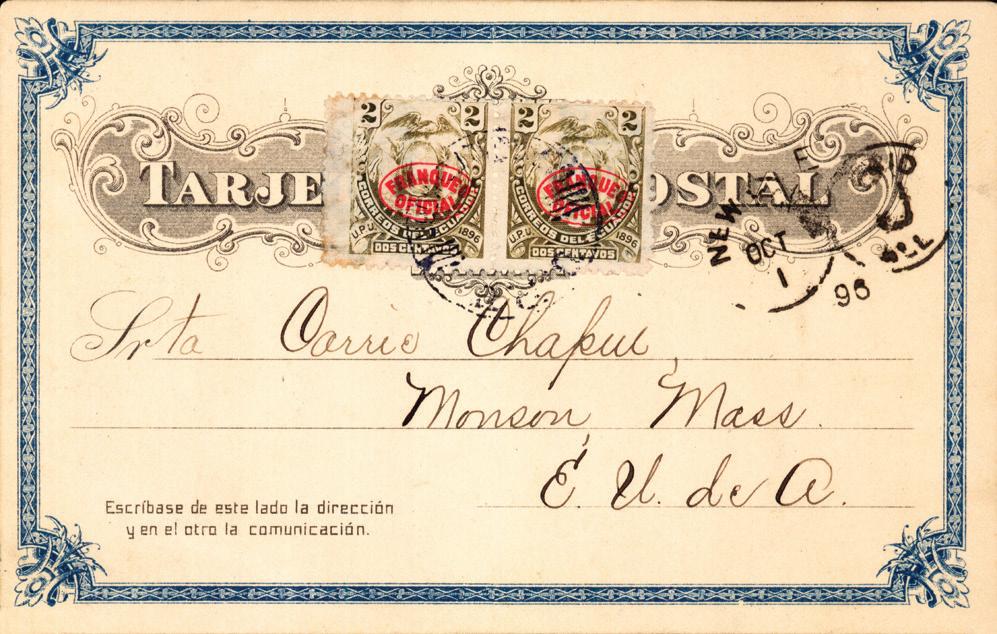 TARJE OSTAL
2 2 2 2
FRANQUEO OFICIAL FRANQUEO OFICIAL
U.P.U. CORREOS DEL ECUADOR 1896 U.P.U. CORREOS DEL ECUADOR 1896
DOS CENTAVOS DOS CENTAVOS
NEW
OCT
1
96
Srta Carrie Chapin,
Monson, Mass.
E. U. de A.
Escríbase de este lado la dirección
y en el otro la comunicación.